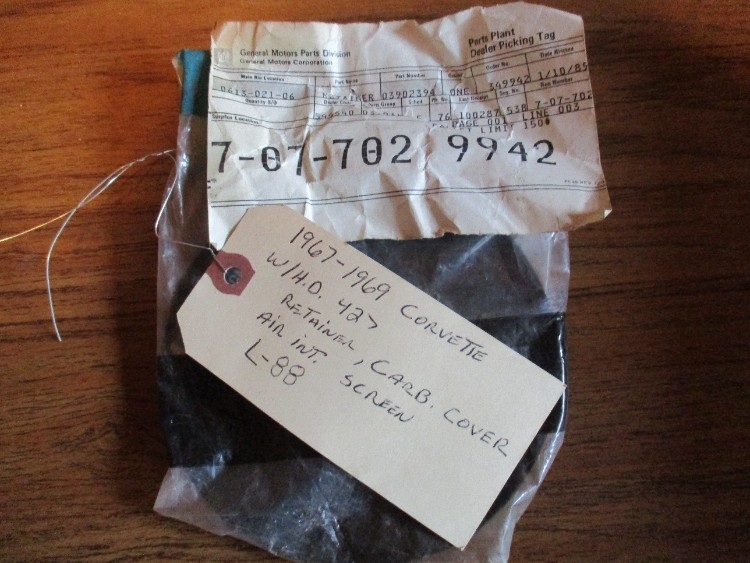 General Motors Parts Division
General Motors Corporation
Parts Plant
Dealer Picking Tag
Main Bin Location
Part Name
Part Number
Order No.
Date Written
0613-021-06
03902394
ONE
349942
1/10/85
Quantity
Group
Seq. No.
Run Number
76
100287
538
7-07-702
Surplus Location
PAGE 001
LINE 003
LIMIT 150
7-07-702 9942
1967-1969 CORVETTE
W/H.D. 427
RETAINER, CARB. COVER
AIR INT. SCREEN
L-88